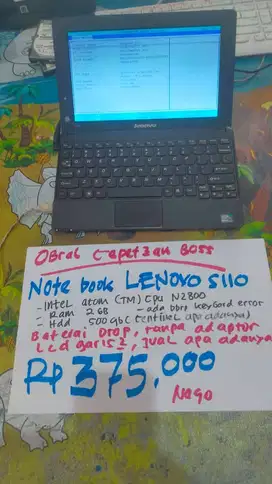 lenovo
OBral CapetZan BOSS
Note book LENOVO S110
- Intel atom (TM) CPU N2800
- Ram 2 GB - ada bbrp keybord error
- Hdd 500 gb ( sentinel apa adanya)
Baterai Drop, tanpa adaptor
Lcd Garis2, jual apa adanya
Rp 375.000
Nego